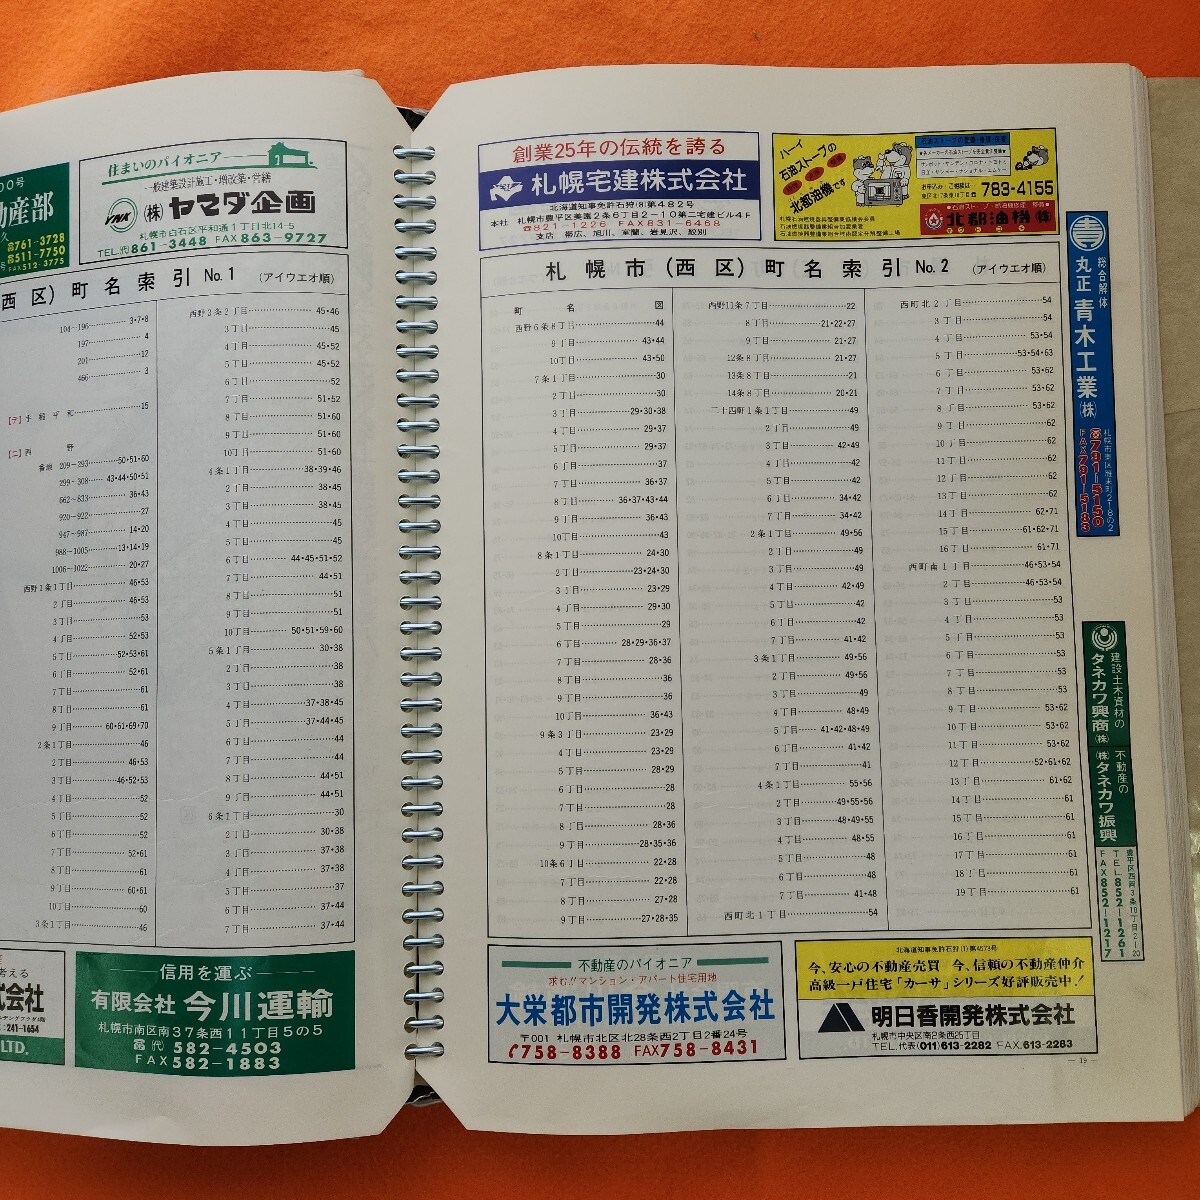 00号
動産部
☎761-3728
☎511-7750
FAX 512-3775
住まいのパイオニア
一般建築設計施工・増改築・営繕
YNK
(株)ヤマダ企画
札幌市白石区平和通1丁目北14-5
TEL.代861-3448 FAX 863-9727
西区)町名索引 No.1 (アイウエオ順)
104~196 3・7・8
197 4
201 12
466 3
【テ】手稲平和 15
【ニ】西野
番地 209~293 50・51・60
299~308 43・44・50・51
662~833 36・43
920~922 27
947~987 14・20
988~1005 13・14・19
1006~1022 20・27
西野1条1丁目 46・53
2丁目 46・53
3丁目 53
4丁目 52・53
5丁目 52・53・61
6丁目 52・61
7丁目 61
8丁目 61
9丁目 60・61・69・70
2条1丁目 46
2丁目 46・53
3丁目 46・52・53
4丁目 52
5丁目 52
6丁目 52
7丁目 52・61
8丁目 61
9丁目 60・61
10丁目 60
3条1丁目 46
西野3条2丁目 45・46
3丁目 45
4丁目 45・52
5丁目 45・52
6丁目 52
7丁目 51・52
8丁目 51・60
9丁目 51・60
10丁目 51・60
4条1丁目 38・39・46
2丁目 38・45
3丁目 38・45
4丁目 45
5丁目 45
6丁目 44・45・51・52
7丁目 44・51
8丁目 51
9丁目 51
10丁目 50・51・59・60
5条1丁目 30・38
2丁目 38
3丁目 38
4丁目 37・38・45
5丁目 37・44・45
6丁目 44
7丁目 44
8丁目 44・51
9丁目 44・51
6条1丁目 30
2丁目 30・38
3丁目 37・38
4丁目 37・38
5丁目 37
6丁目 37・44
7丁目 37・44
考える
式会社
241-1654
LTD.
信用を運ぶ
有限会社 今川運輸
札幌市南区南37条西11丁目5の5
☎(代)582-4503
FAX 582-1883
創業25年の伝統を誇る
札幌宅建株式会社
北海道知事免許石狩(8)第482号
本社 札幌市豊平区美園2条6丁目2-10第二宅建ビル4F
☎821-1226 FAX831-6468
支店 帯広、旭川、室蘭、岩見沢、紋別
ハーイ
石油ストーブの
北都油機です
札幌石油燃焼器整備業協議会会員
お申込み・ご相談は
783-4155
北都油機(株)
札幌市(西区)町名索引 No.2 (アイウエオ順)
町名 図
西野6条8丁目 44
9丁目 43・44
10丁目 43・50
7条1丁目 30
2丁目 30
3丁目 29・30・38
4丁目 29・37
5丁目 29・37
6丁目 37
7丁目 36・37
8丁目 36・37・43・44
9丁目 36・43
10丁目 43
8条1丁目 24・30
2丁目 23・24・30
3丁目 23・29
4丁目 29・30
5丁目 29
6丁目 28・29・36・37
7丁目 28・36
8丁目 36
9丁目 36
10丁目 36・43
9条3丁目 23・29
4丁目 23・29
5丁目 28・29
6丁目 28
7丁目 28
8丁目 28・36
9丁目 28・35・36
10条6丁目 22・28
7丁目 22・28
8丁目 28
9丁目 27・28・35
西野11条7丁目 22
8丁目 21・22・27
9丁目 21・27
12条8丁目 21・27
13条8丁目 21
14条8丁目 20・21
二十四軒1条1丁目 49
2丁目 49
3丁目 42・49
4丁目 42
5丁目 42
6丁目 34・42
7丁目 34・42
2条1丁目 49・56
2丁目 49
3丁目 49
4丁目 42・49
5丁目 42
6丁目 42
7丁目 41・42
3条1丁目 49・56
2丁目 49・56
3丁目 49
4丁目 48・49
5丁目 41・42・48・49
6丁目 41・42
7丁目 41
4条1丁目 55・56
2丁目 49・55・56
3丁目 48・49・55
4丁目 48・55
5丁目 48
6丁目 48
7丁目 41・48
西町北1丁目 54
西町北2丁目 54
3丁目 54
4丁目 53・54
5丁目 53・54・63
6丁目 53・62
7丁目 53・62
8丁目 53・62
9丁目 62
10丁目 62
11丁目 62
12丁目 62
13丁目 62
14丁目 62・71
15丁目 61・62・71
16丁目 61・71
西町南1丁目 46・53・54
2丁目 46・53・54
3丁目 53
4丁目 53
5丁目 53
6丁目 53
7丁目 53
8丁目 53
9丁目 53・62
10丁目 53・62
11丁目 53・62
12丁目 52・61・62
13丁目 61・62
14丁目 61
15丁目 61
16丁目 61
17丁目 61
18丁目 61
19丁目 61
総合解体
丸正 青木工業(株)
☎791-5150
FAX791-5183
建設土木資材の
タネカワ興商(株)
不動産の
(株)タネカワ振興
豊平区西岡3条10丁目2-20
TEL852-1261
FAX852-1217
不動産のパイオニア
求む!!マンション・アパート住宅用地
大栄都市開発株式会社
〒001 札幌市北区北28条西2丁目2番24号
758-8388 FAX758-8431
北海道知事免許石狩(1)第4573号
今、安心の不動産売買 今、信頼の不動産仲介
高級一戸住宅「カーサ」シリーズ好評販売中!
明日香開発株式会社
札幌市中央区南2条西25丁目
TEL.代表(011)613-2282 FAX.613-2283
— 19 —